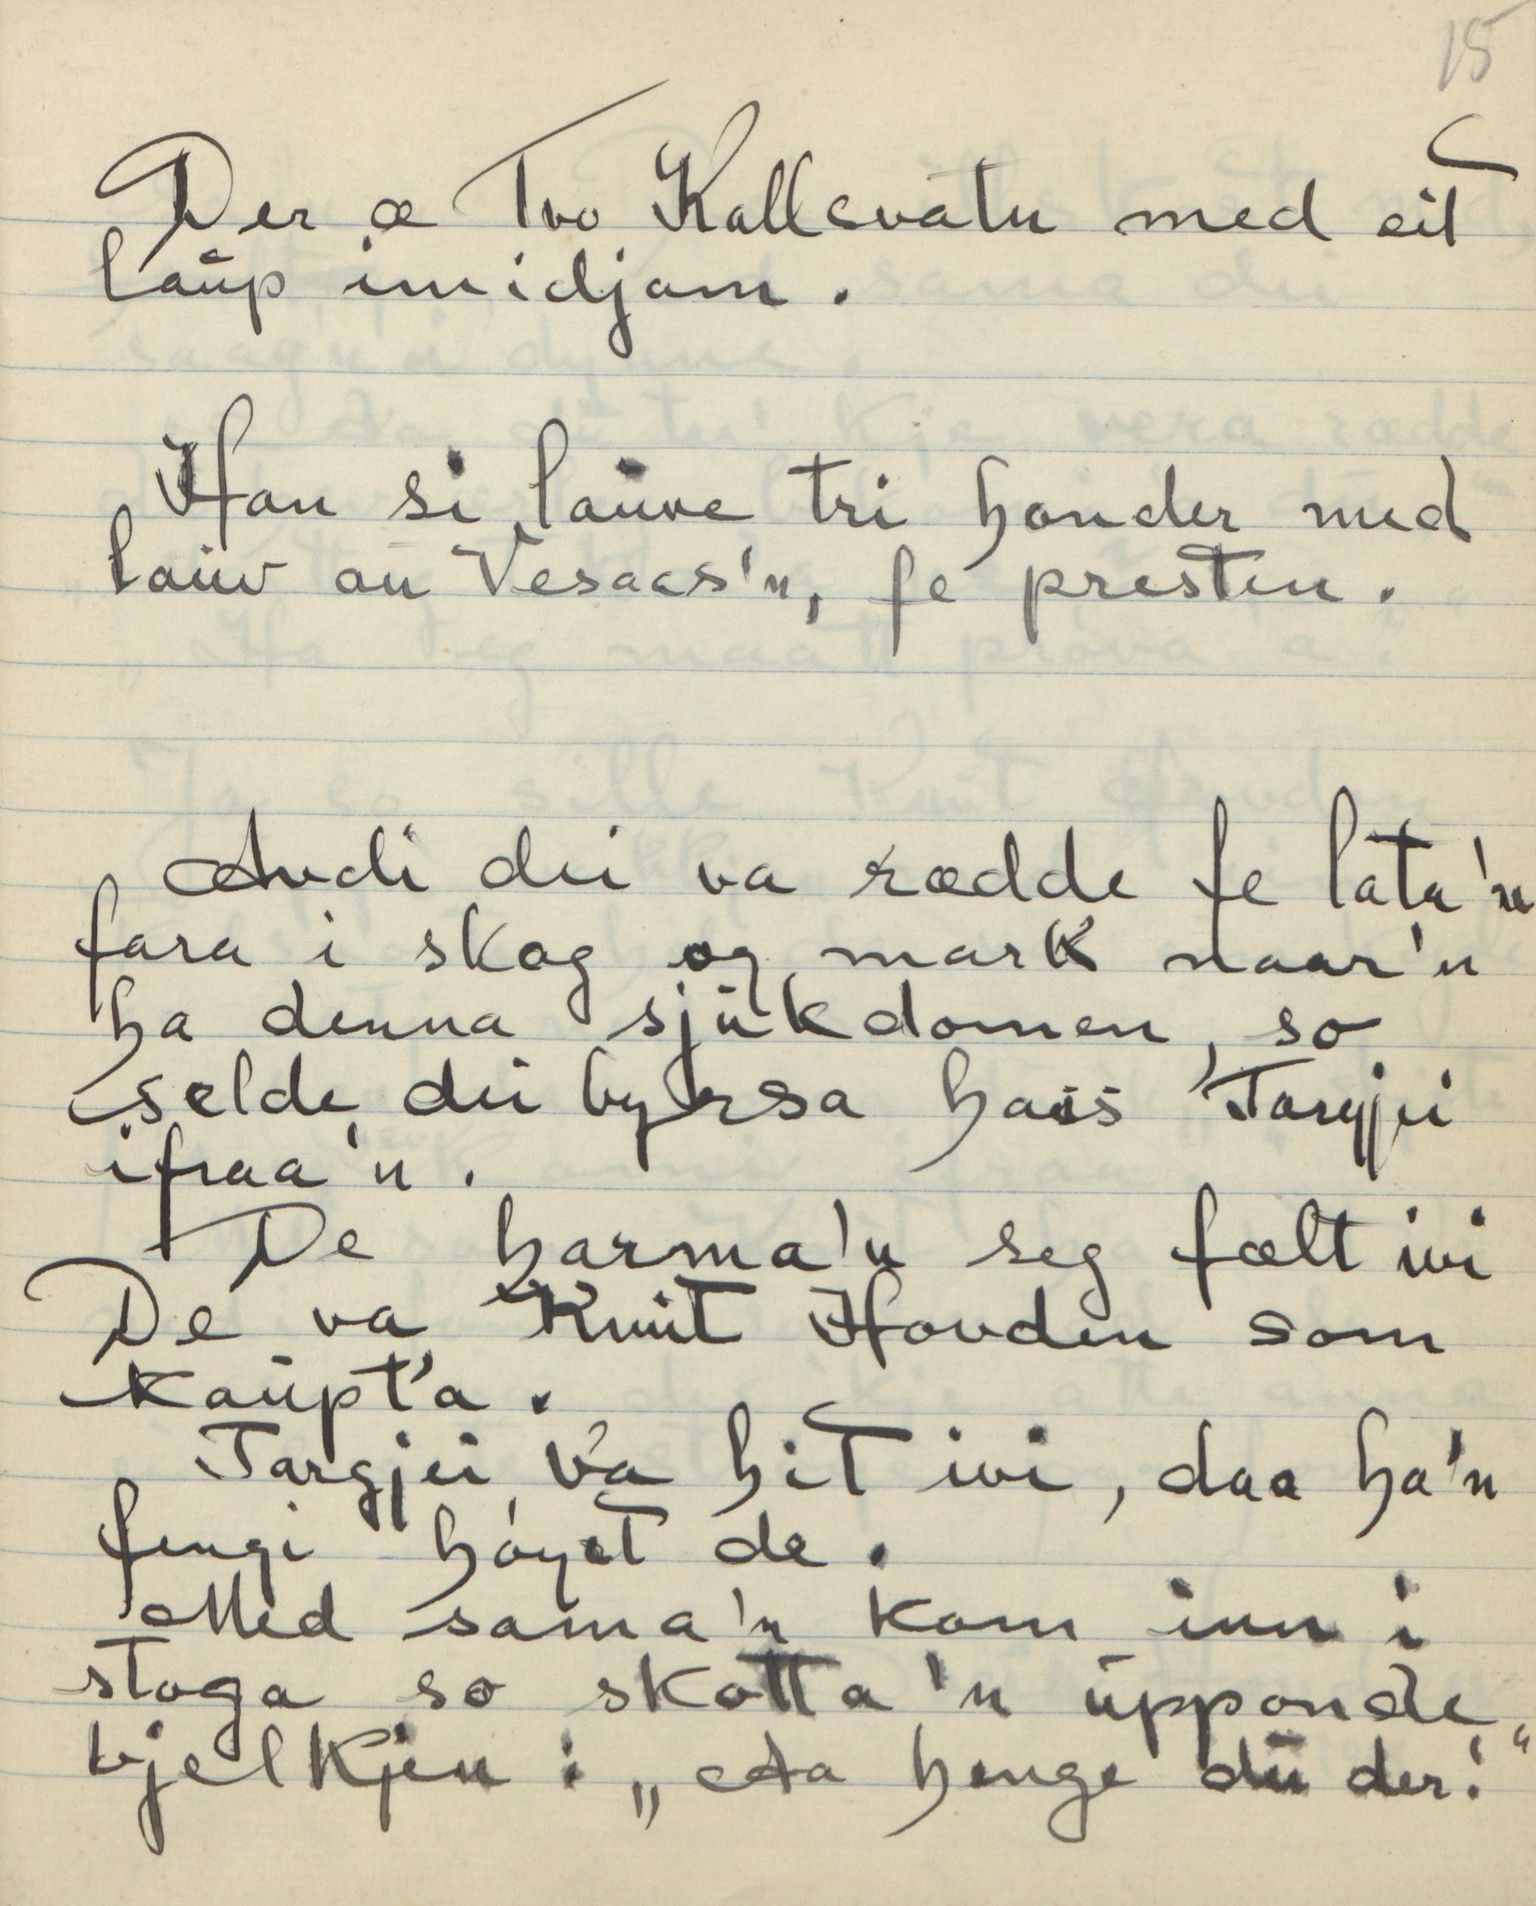 15
Der æ Tvo Kallevatn med eit
laup imidjam.
Han si lauve tri honder med
lauv au Vesaas'n, fe presten.
Avdi dei va rædde fe lata'n
fara i skog og mark naar'n
ha denna sjukdomen, so
selde dei byrsa hass Targjei
ifraa'n.
De harma'n seg fælt ivi
De va Knut Hovden som
kaupt'a.
Targjei va hit ivi, daa ha'n
fengi høyrt de.
Med sama'n kom inn i
stoga so skotta'n upponde
bjelkjen: „Aa henge du der!“